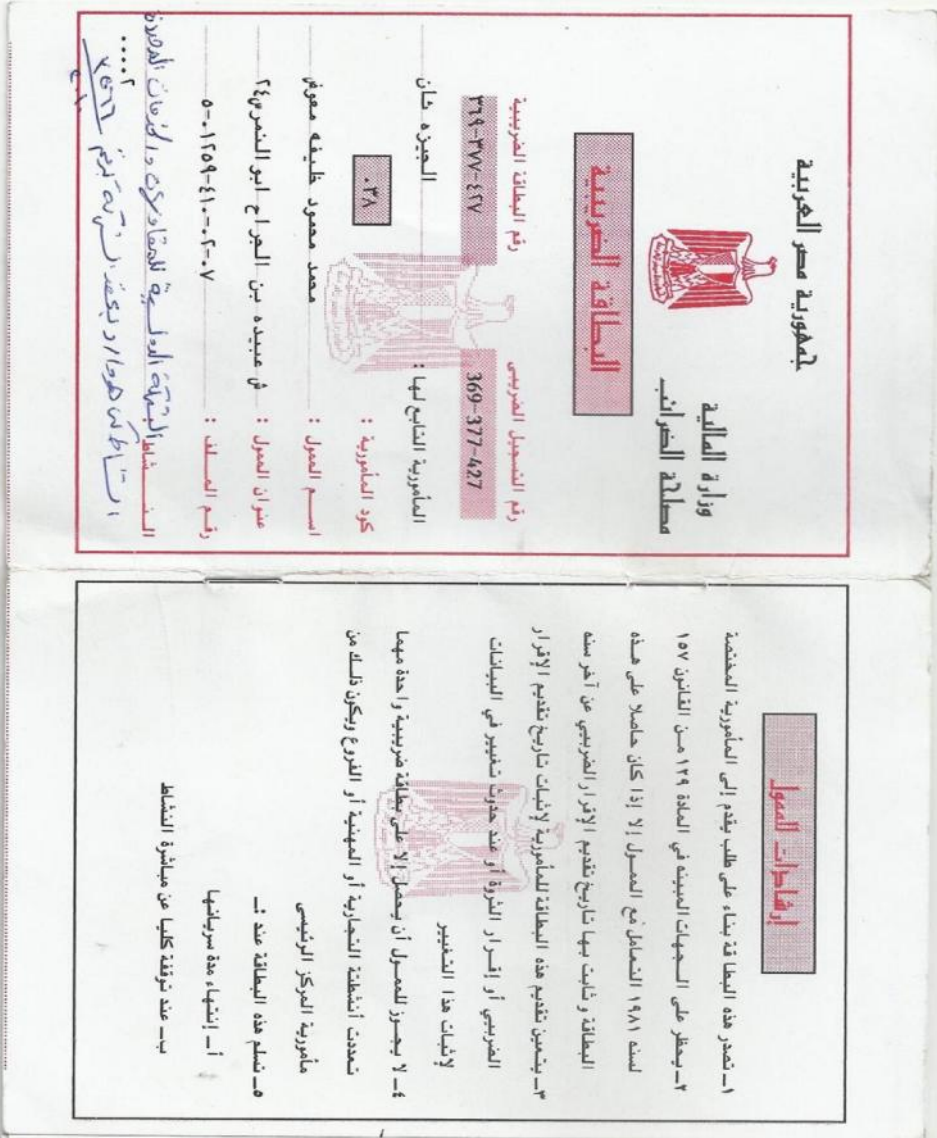 جمهورية مصر العربية
وزارة المالية
مصلحة الضرائب
البطاقة الضريبية
رقم التسجيل الضريبى
رقم البطاقة الضريبية
369-377-427
٣٦٩-٣٧٧-٤٢٧
المأمورية التابع لها : الجيزه ثان
كود المأمورية : ٠٣٨
اسم الممول : محمد محمود خليفه معوض
عنوان الممول : ش عبيده بن الجراح ابو النمرس٢٤
رقم الملف : ٥-٠١٢٥٩-٤١٠-٠٢-٠٧
النشاط الشركة الدولية للمقاولات
إرشادات للممول
١ـ تصدر هذه البطاقة بناء على طلب يقدم إلى المأمورية المختصة
٢ـ يحظر على الجهات المبينه في المادة ١٢٩ من القانون ١٥٧
لسنه ١٩٨١ التعامل مع الممول إلا إذا كان حاصلا على هذه
البطاقة وثابت بها تاريخ تقديم الإقرار الضريبي عن آخر سنه
٣ـ يتعين تقديم هذه البطاقة للمأمورية لإثبات تاريخ تقديم الإقرار
الضريبي أو إقرار الثروة أو عند حدوث تغيير في البيانات
لإثبات هذا التغيير
٤ـ لا يجوز للممول أن يحصل إلا على بطاقة ضريبية واحدة مهما
تعددت أنشطتة التجارية أو المهنية أو الفروع ويكون ذلك من
مأمورية المركز الرئيسى
٥ـ تسلم هذه البطاقة عند :ـ
أ ـ إنتهاء مدة سريانها
ب ـ عند توقفة كليا عن مباشرة النشاط